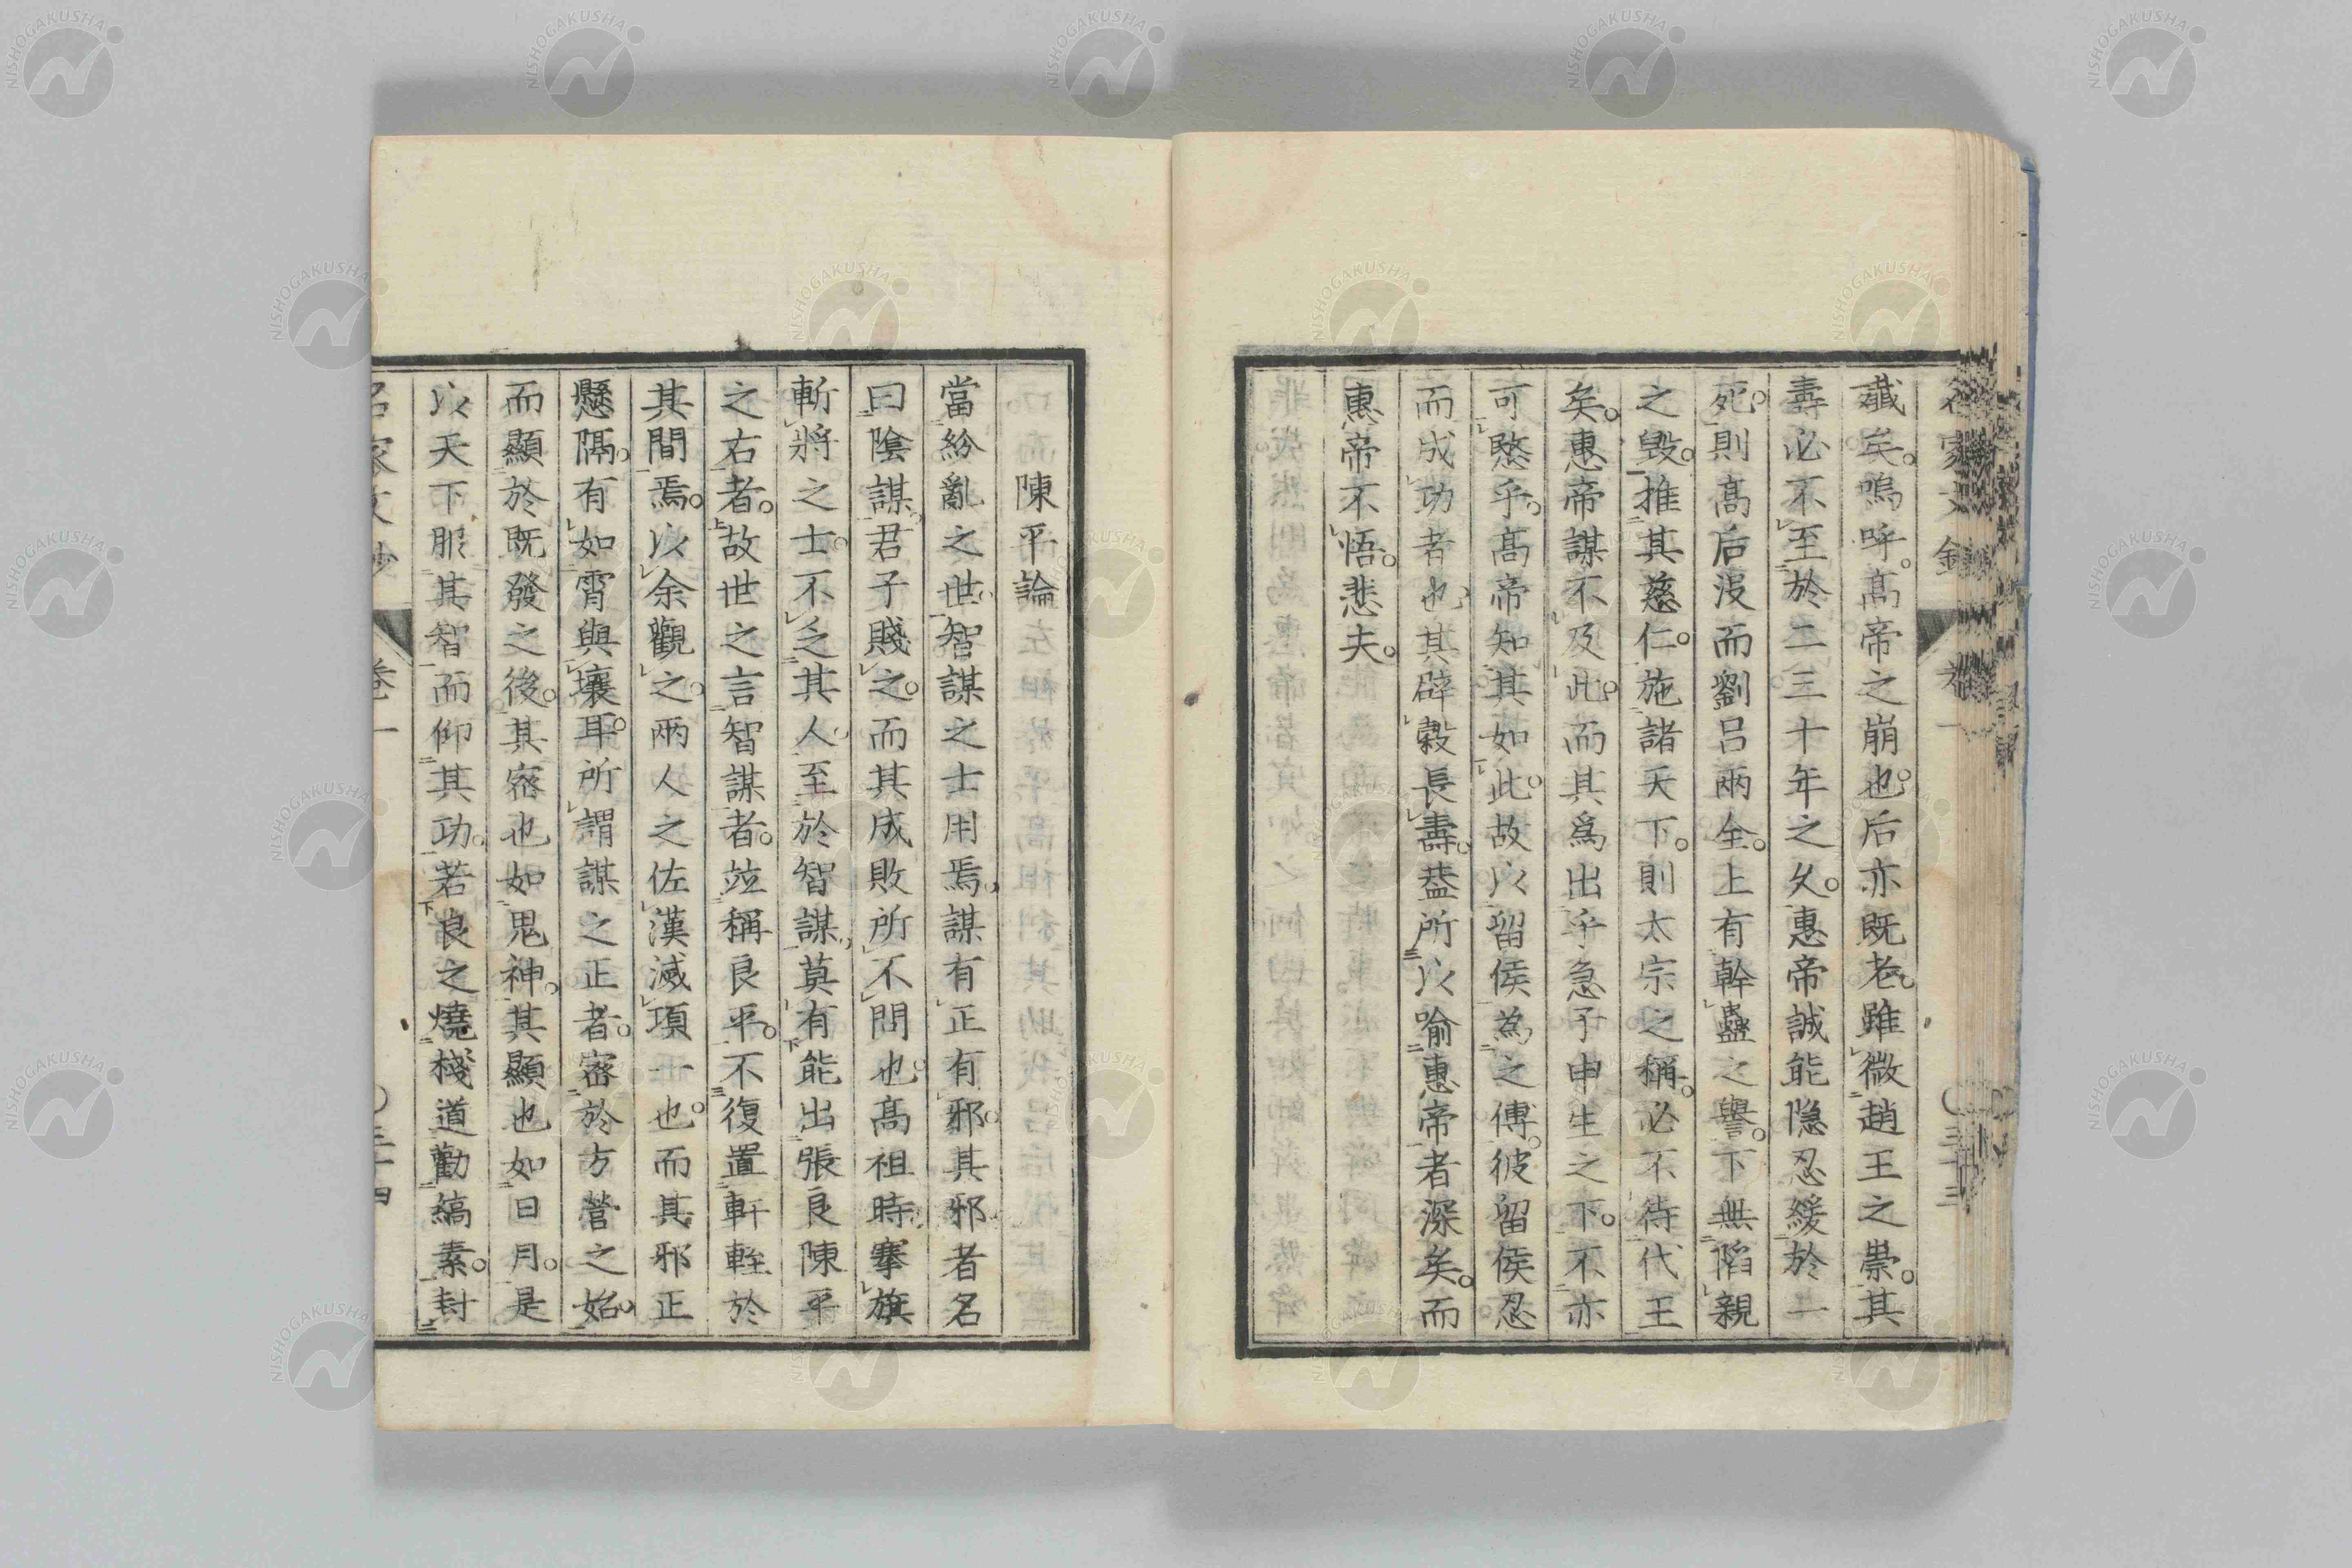 殲矣。嗚呼。高帝之崩也。后亦既老。雖微趙王之祟。其
壽必不至於二三十年之久。惠帝誠能隱忍緩於一
死。則高后沒而劉呂兩全。上有幹蠱之譽。下無陷親
之毀。推其慈仁。施諸天下。則太宗之稱。必不待代王
矣。惠帝謀不及此。而其爲出乎急子申生之下。不亦
可愍乎。高帝知其如此。故以留侯為之傅。彼留侯忍
而成功者也。其辟穀長壽。葢所以喻惠帝者深矣。而
惠帝不悟。悲夫。
陳平論
當紛亂之世。智謀之士用焉。謀有正有邪。其邪者名
曰陰謀。君子賤之。而其成敗所不問也。高祖時。搴旗
斬將之士。不乏其人。至於智謀。莫有能出張良陳平
之右者。故世之言智謀者。竝稱良平。不復置軒輊於
其間焉。以余觀之。兩人之佐漢滅項一也。而其邪正
懸隔。有如霄與壤耳。所謂謀之正者。密於方營之始。
而顯於既發之後。其密也如鬼神。其顯也如日月。是
以天下服其智而仰其功。若良之燒棧道勸縞素。封
名家文鈔
卷一
NISHOGAKUSHA